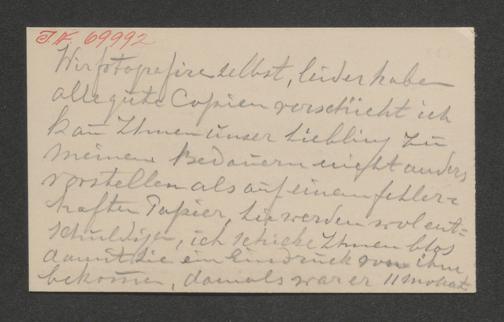 I.N. 69992
Wir fotografiren selbst, leider haben
alle gute Copien verschickt ich
kan Ihnen unser Liebling zu
meinem Bedauern nicht anders
vorstellen als auf einem fehler=
haften Papier, Sie werden wol ent=
schuldigen, ich schicke Ihnen blos
damit Sie ein Eindruck von ihm
bekomen, damals war er 11 Monate